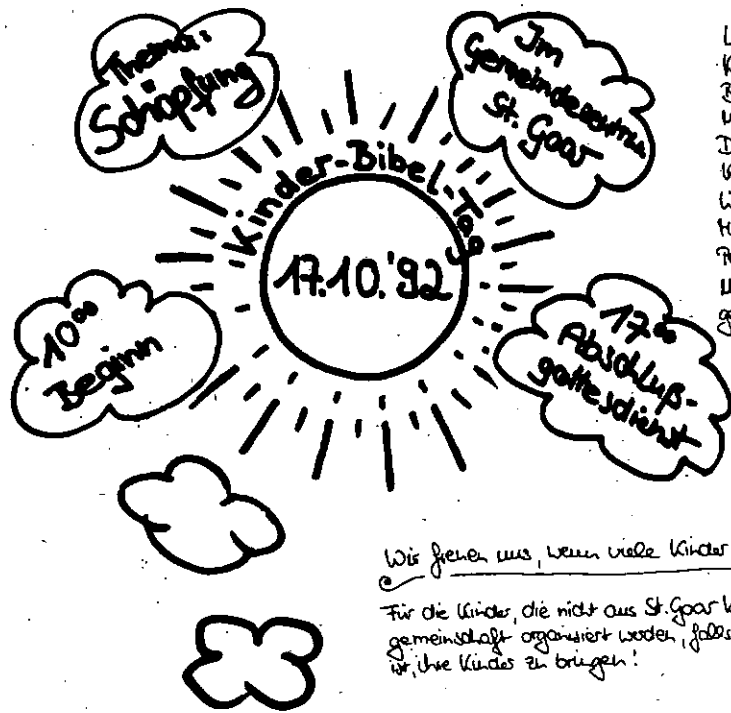 Thema:
Schöpfung
Im
Gemeindezentrum
St. Goar
Kinder-Bibel-Tag
17.10.'92
10⁰⁰
Beginn
17⁰⁰
Abschluß-
gottesdienst
Wir freuen uns, wenn viele Kinder
Für die Kinder, die nicht aus St. Goar
gemeinschaft organisiert werden, falls
ist, ihre Kinder zu bringen!